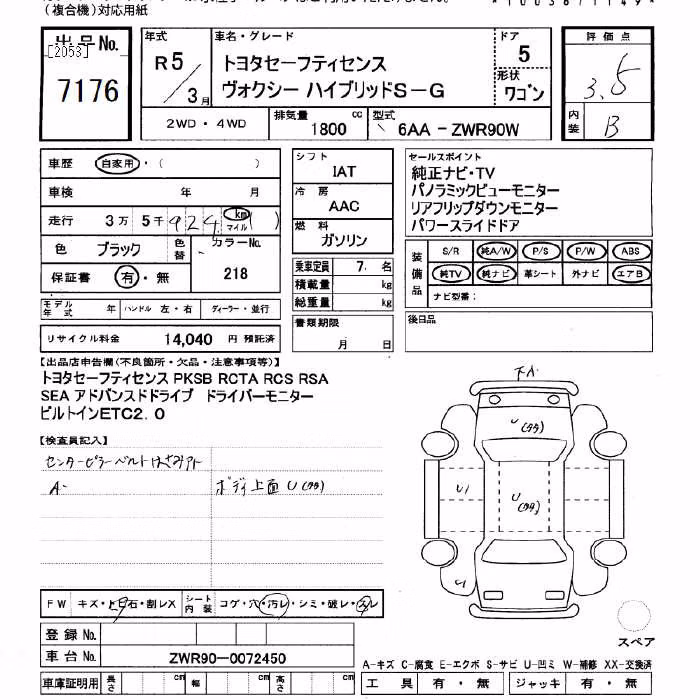 (複合機)対応用紙
出品No.
[2053]
7176
年式
R5/3月
車名・グレード
トヨタセーフティセンス
ヴォクシー ハイブリッドS-G
ドア
5
形状
ワゴン
評価点
3.5
内装
B
2WD・4WD
排気量
1800 cc
型式
6AA-ZWR90W
車歴 自家用・( )
車検 年 月
走行 3万 5千924 km マイル ( )
色 ブラック 色替 カラーNo.
保証書 有・無 218
モデル年式 年 ハンドル 左・右 ディーラー・並行
リサイクル料金 14,040 円 預託済
シフト
IAT
冷房
AAC
燃料
ガソリン
乗車定員 7. 名
積載量 kg
総重量 kg
書類期限
月 日
セールスポイント
純正ナビ・TV
パノラミックビューモニター
リアフリップダウンモニター
パワースライドドア
装備品
S/R 純A/W P/S P/W ABS
純TV 純ナビ 革シート 外ナビ エアB
ナビ型番:
後日品
【出品店申告欄(不良箇所・欠品・注意事項等)】
トヨタセーフティセンス PKSB RCTA RCS RSA
SEA アドバンスドドライブ ドライバーモニター
ビルトインETC2.0
【検査員記入】
センターピラーベルトはさみアト
A-
ボディ上面U(タタ)
下A
U(タタ)
U1
U(タタ)
FW キズ・トビ石・割レX シート内装 コゲ・穴・汚レ・シミ・破レ・スレ
登録No.
車台No. ZWR90-0072450
車庫証明用 長さ cm 幅 cm 高さ cm
スペア
A-キズ C-腐食 E-エクボ S-サビ U-凹ミ W-補修 XX-交換済
工具 有・無 ジャッキ 有・無